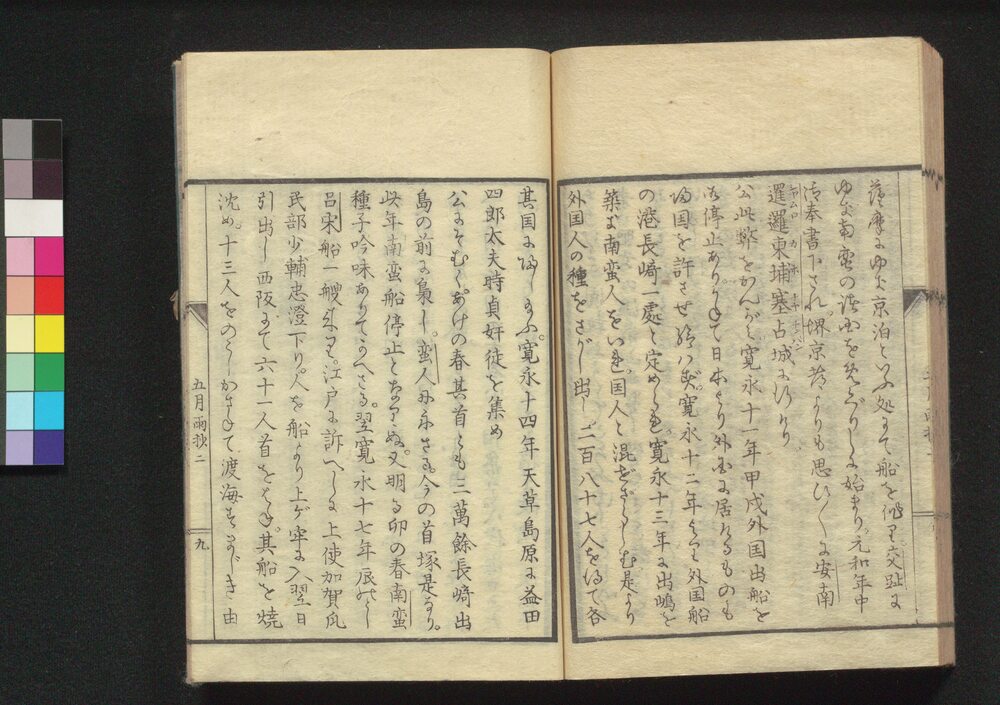 薩摩にゆき京泊といふ処にて船を作り交趾に
ゆき南蛮の
始まり。元和年中
御奉書下され。堺京
よりも思ひ〱に安南
暹羅東埔塞占城に
シヤムロ
カホチヤ
公此弊をかんがへ寛永十一年甲戌外国出船を
御停止ありかさねて日本より外国に居けるものも
帰国を許させ給はず。寛永十二年より外国船
の港長崎一處と定めらる。寛永十三年に出嶋を
築き南蛮人をいれ。国人と混ざらしむ是より
外国人の種をさがし出し二百八十七人を得て各
其国に帰したまふ。寛永十四年天草島原に益田
四郎太夫時貞奸徒を集め
公にそむく。あけの春其首とも三萬餘長崎出
島の前に梟し。蛮人に示さる。今の首塚是なり。
此年南蛮船停止となりぬ。又明る卯の春南蛮
種子吟味ありてかへさる。翌寛永十七年辰のとし
呂宋船一艘来る。江戸に訴へしに上使加賀爪
民部少輔忠澄下り。人を船より上げ牢に入翌日
引出し西阪にて六十一人首をはね。其船を焼
沈め。十三人をのこしかさねて渡海すまじき由
五月雨抄二
九